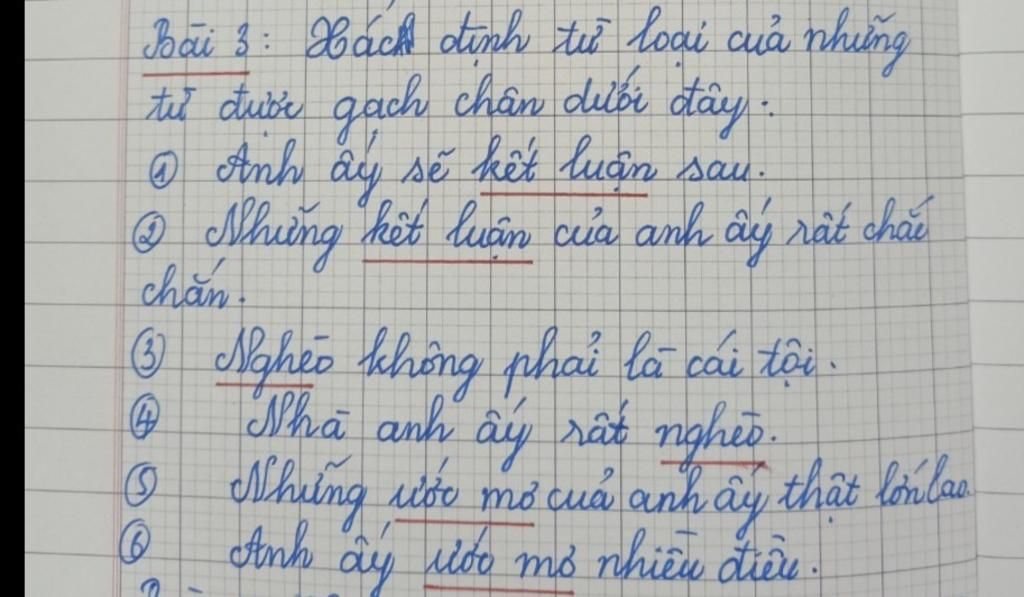 Bài 3: Xác định từ loại của những
từ được gạch chân dưới đây:
① Anh ấy sẽ kết luận sau.
② Những kết luận của anh ấy rất chắc
chắn.
③ Nghèo không phải là cái tội.
④ Nhà anh ấy rất nghèo.
⑤ Những ước mơ của anh ấy thật lớn lao.
⑥ Anh ấy ước mơ nhiều điều.